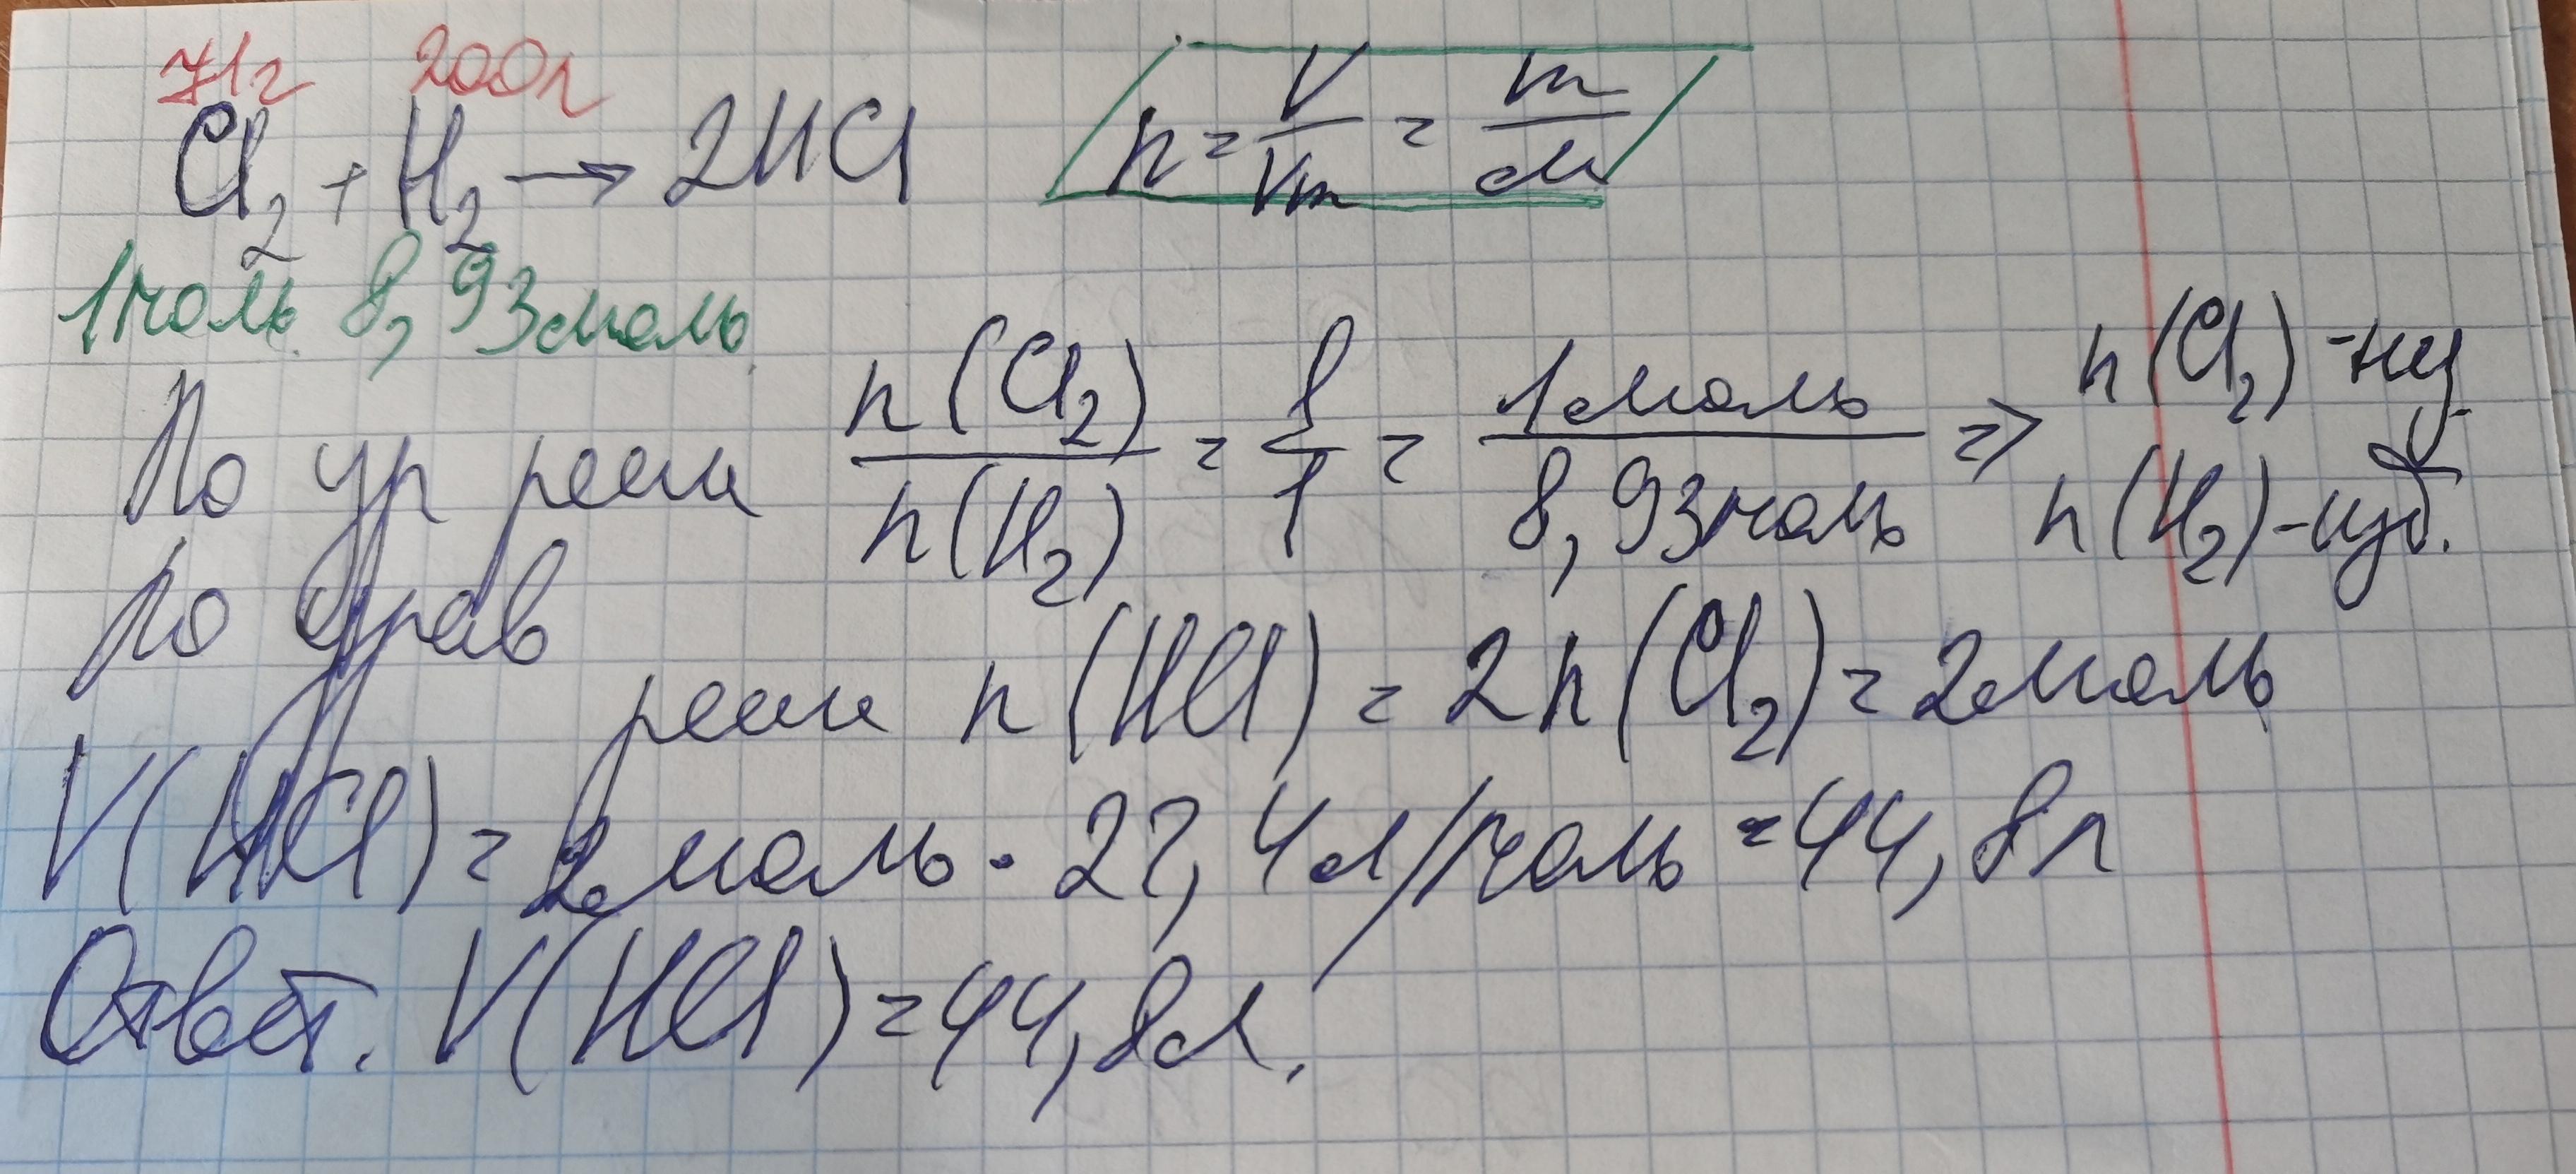 71г 200л
Cl₂ + H₂ → 2HCl n = V/Vm = m/M
1моль 8,93моль
По ур реак n(Cl₂)/n(H₂) = 1/1 = 1моль/8,93моль => n(Cl₂) - нед n(H₂) - изб.
по Урав
реак n(HCl) = 2n(Cl₂) = 2моль
V(HCl) = 2моль · 22,4л/моль = 44,8л
Ответ. V(HCl) = 44,8л.